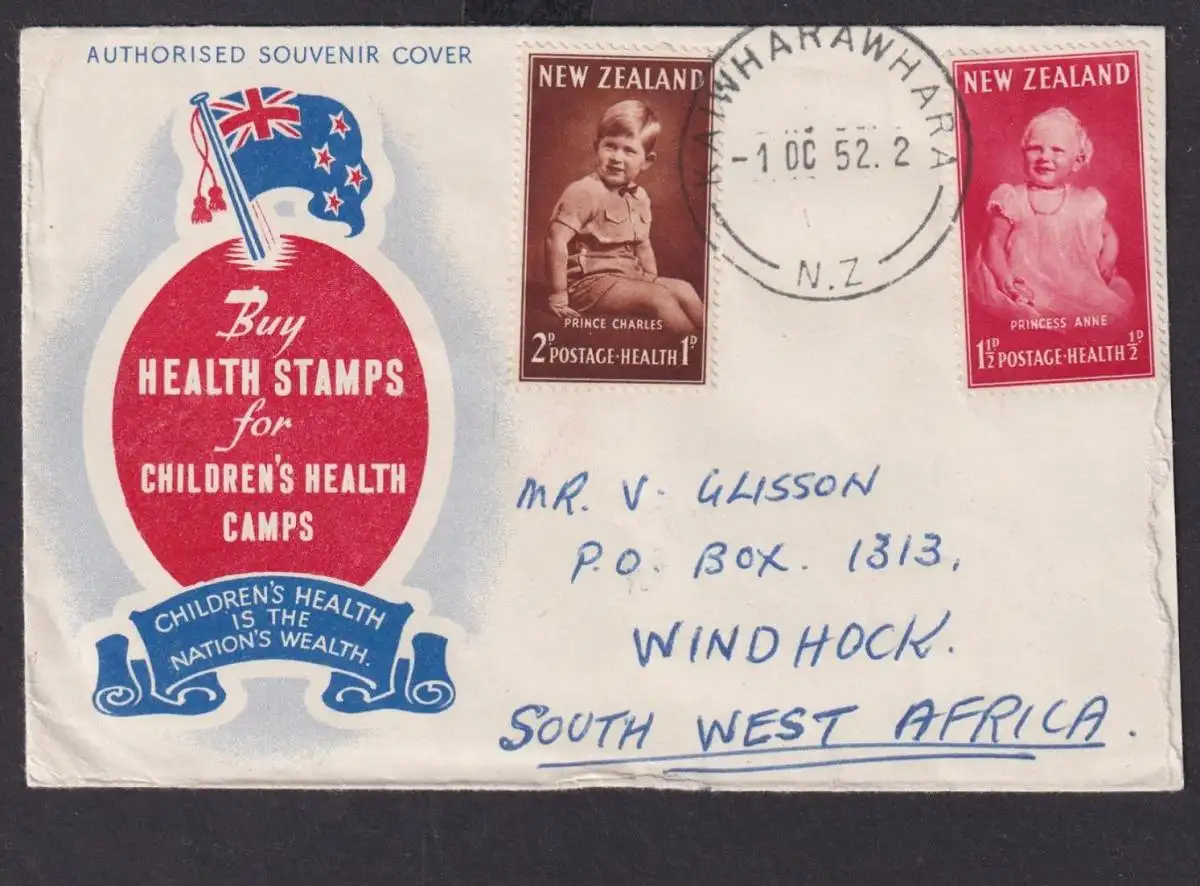 AUTHORISED SOUVENIR COVER
Buy
HEALTH STAMPS
for
CHILDREN'S HEALTH
CAMPS
CHILDREN'S HEALTH
IS THE
NATION'S WEALTH.
NEW ZEALAND
PRINCE CHARLES
2D POSTAGE·HEALTH 1D
WHARAWHARA
-1 OC 52.2
N.Z
NEW ZEALAND
PRINCESS ANNE
1½D POSTAGE·HEALTH ½D
MR. V. GLISSON
P.O. BOX. 1313.
WINDHOCK.
SOUTH WEST AFRICA.